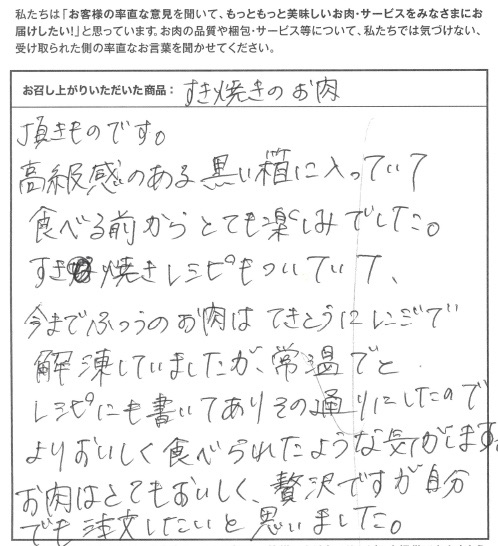 私たちは「お客様の率直な意見を聞いて、もっともっと美味しいお肉・サービスをみなさまにお
届けしたい!」と思っています。お肉の品質や梱包・サービス等について、私たちでは気づけない、
受け取られた側の率直なお言葉を聞かせてください。
お召し上がりいただいた商品： すき焼きのお肉
頂きものです。
高級感のある黒い箱に入っていて
食べる前からとても楽しみでした。
すき焼きレシピもついていて、
今までふつうのお肉はてきとうにレンジで
解凍していましたが、常温でと
レシピにも書いてありその通りにしたので
よりおいしく食べられたような気がします。
お肉はとてもおいしく、贅沢ですが自分
でも注文したいと思いました。